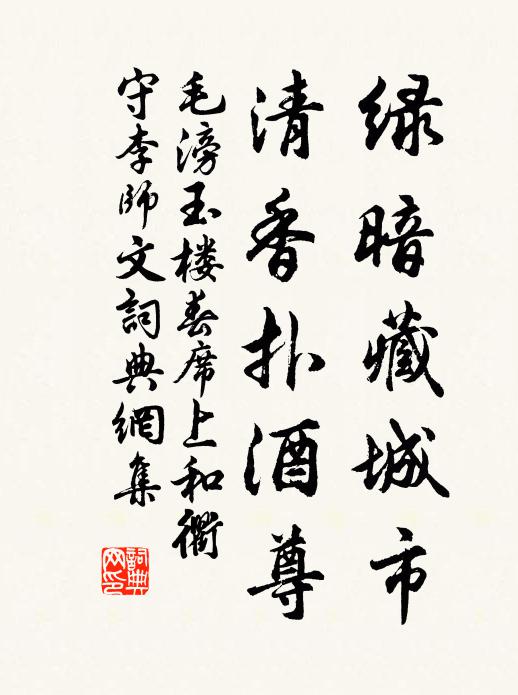 绿暗藏城市
清香扑酒尊
毛滂玉楼春席上和衢
守李师文词典网集
词典网印